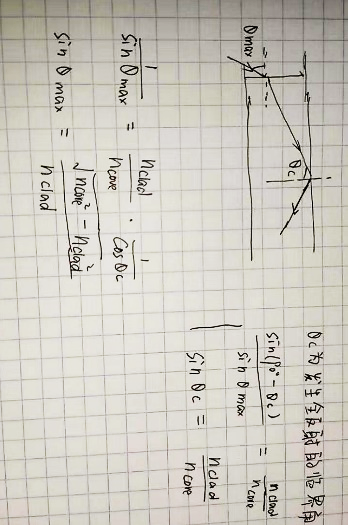 θmax
θc
θc为发生全反射的临界角
sin(90°-θc) / sin θmax = nclad / ncore
sin θc = nclad / ncore
1 / sin θmax = nclad / ncore · 1 / cos θc
sin θmax = √(ncore² - nclad²) / nclad